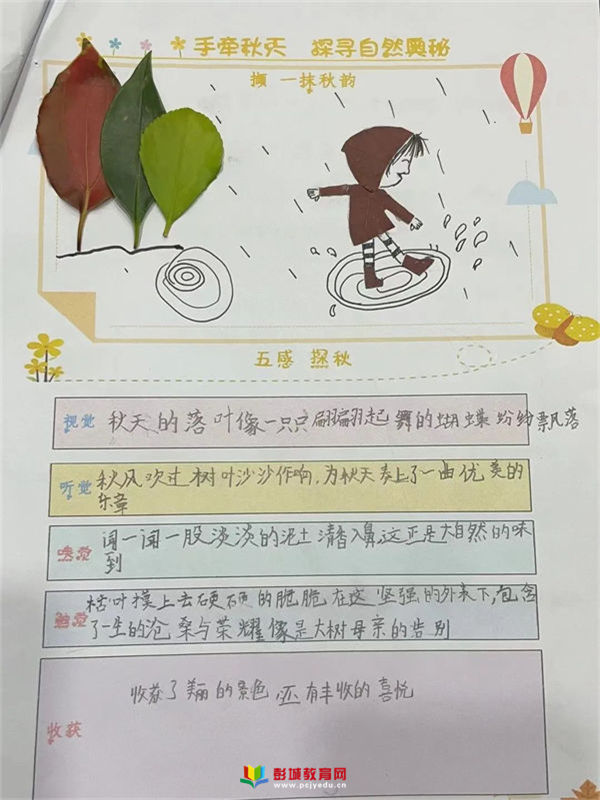 手牵秋天 探寻自然奥秘
撷 一抹秋韵
五感 探秋
视觉 秋天的落叶像一只只翩翩起舞的蝴蝶纷纷飘落
听觉 秋风吹过树叶沙沙作响,为秋天奏上了一曲优美的
乐章
嗅觉 闻一闻一股淡淡的泥土清香入鼻,这正是大自然的味
到
触觉 枯叶摸上去硬硬的脆脆在这坚强的外表下,包含
了一生的沧桑与荣耀像是大树母亲的告别
收获 收获了美丽的景色,还有丰收的喜悦
彭城教育网
www.pcjyedu.cn